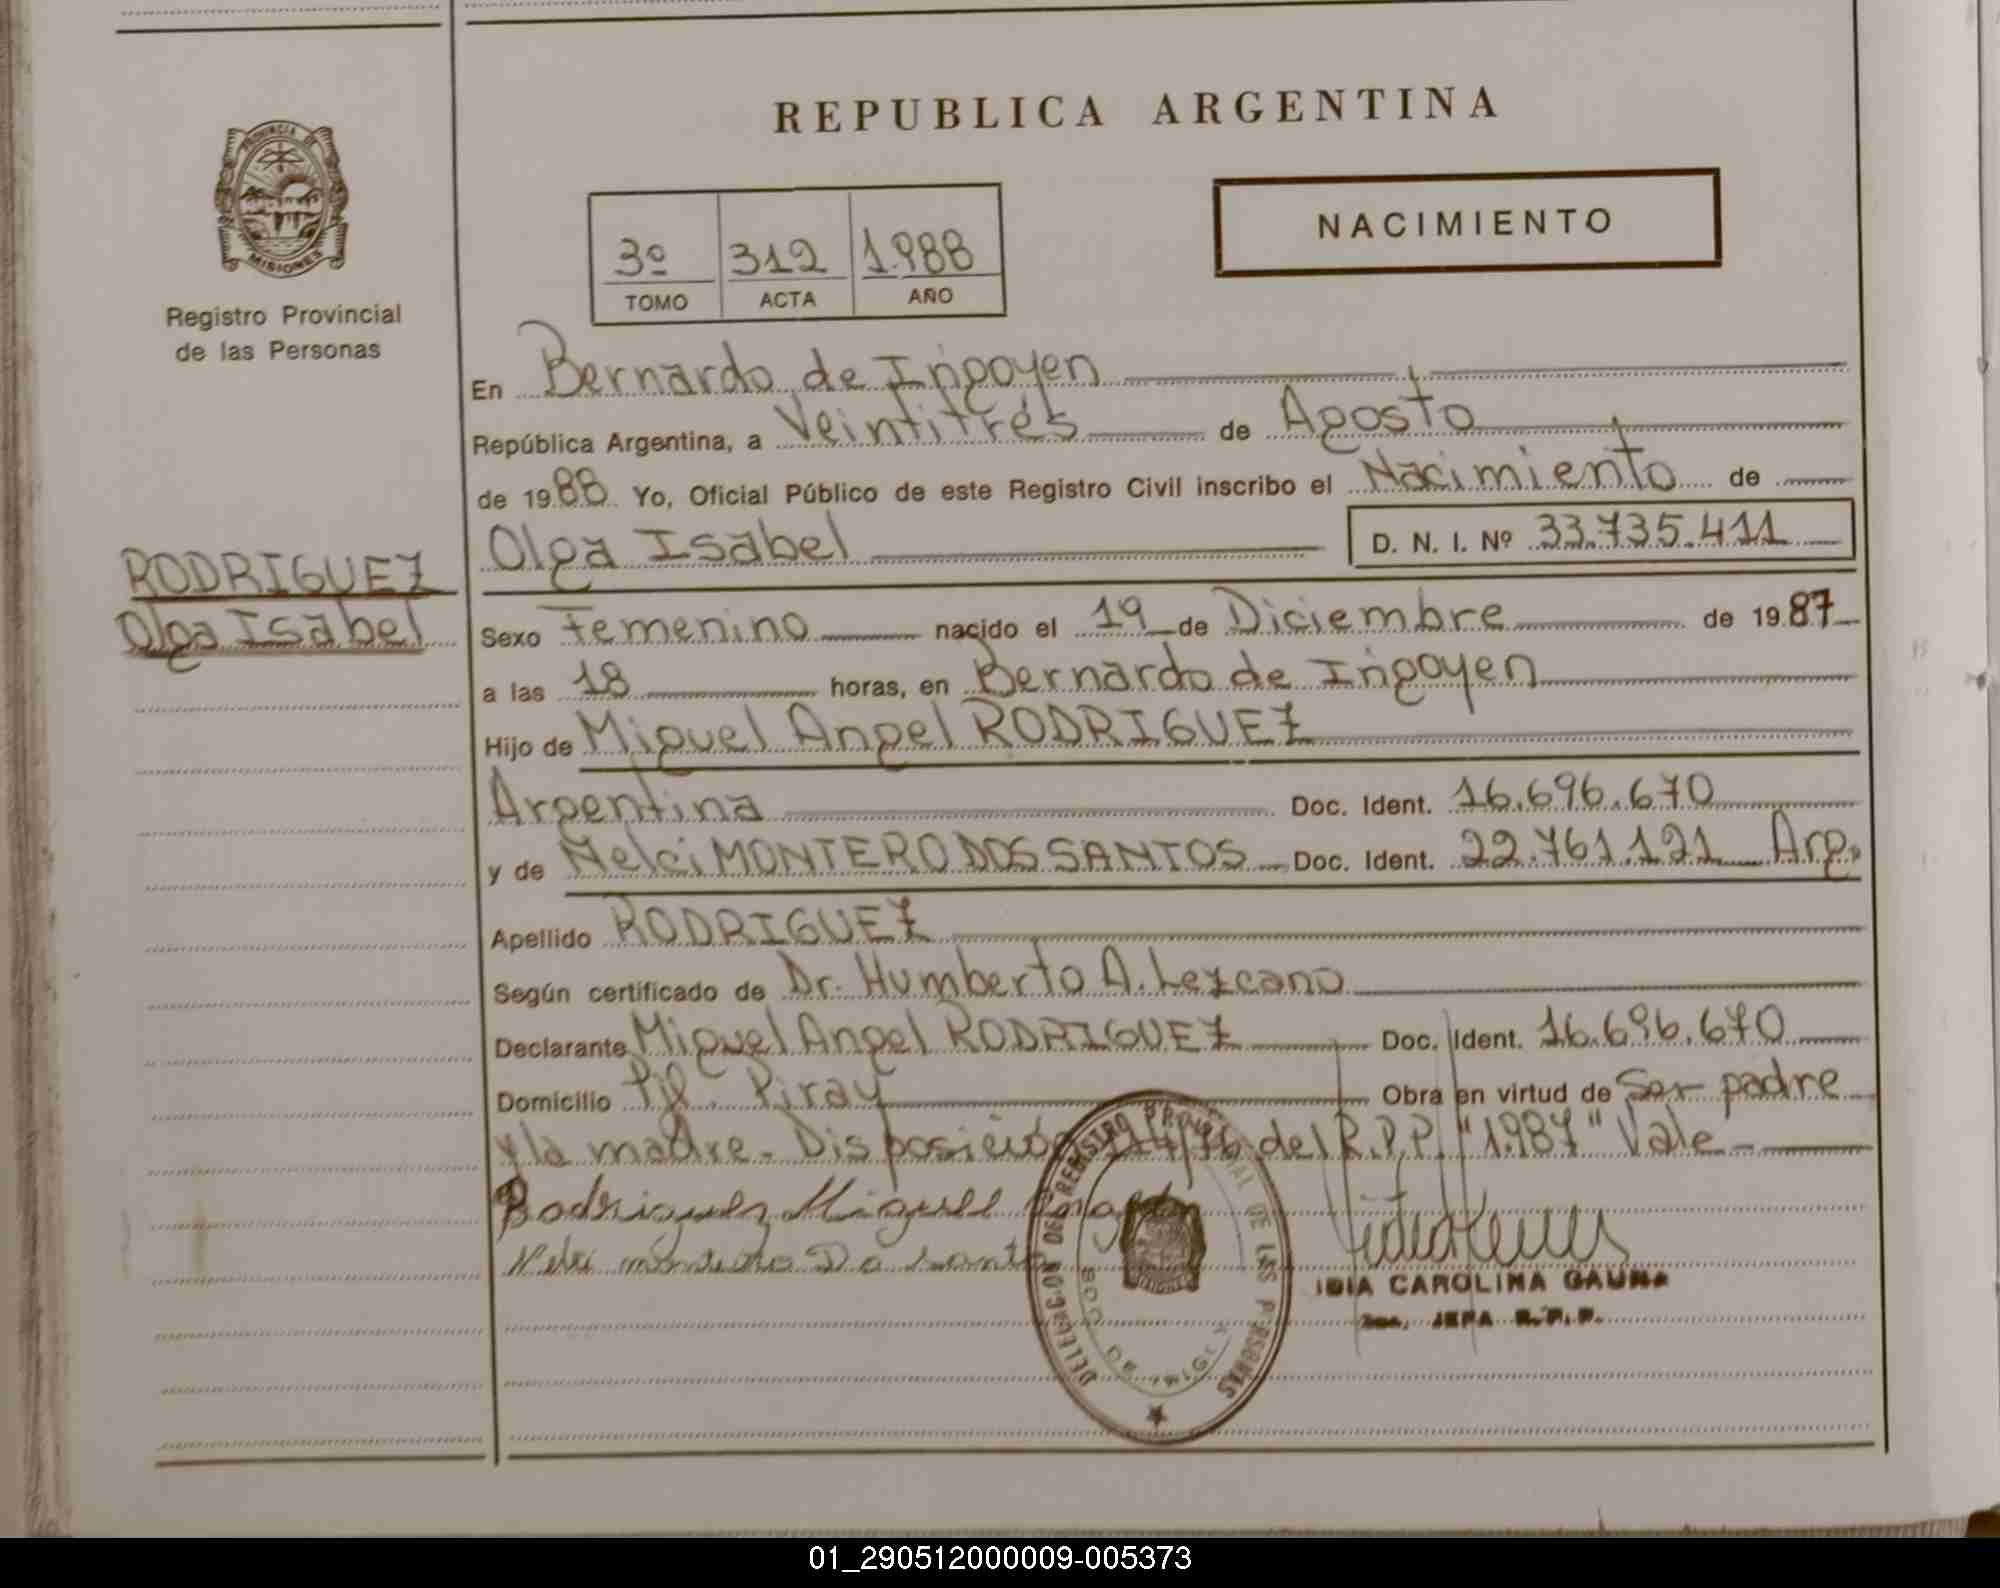 REPUBLICA ARGENTINA
PROVINCIA DE MISIONES
Registro Provincial
de las Personas
NACIMIENTO
3º 312 1.988
TOMO ACTA AÑO
En Bernardo de Irigoyen
República Argentina, a Veintitrés de Agosto
de 1988 Yo, Oficial Público de este Registro Civil inscribo el Nacimiento de
Olga Isabel D. N. I. Nº 33.735.411
RODRIGUEZ
Olga Isabel
Sexo Femenino nacido el 19 de Diciembre de 1987
a las 18 horas, en Bernardo de Irigoyen
Hijo de Miguel Angel RODRIGUEZ
Argentina Doc. Ident. 16.696.670
y de Nelci MONTERO DOS SANTOS Doc. Ident. 22.761.121 Arg.
Apellido RODRIGUEZ
Según certificado de Dr. Humberto A. Lezcano
Declarante Miguel Angel RODRIGUEZ Doc. Ident. 16.696.670
Domicilio Pjl. Piray Obra en virtud de Ser padre
y la madre. Disposición 14/76 del R.P.P. "1.987" Vale
Rodriguez Miguel
DELEGACION DEL REGISTRO PROVINCIAL DE LAS PERSONAS
CAROLINA GAUNA
JEFA R.P.P.
01_290512000009-005373